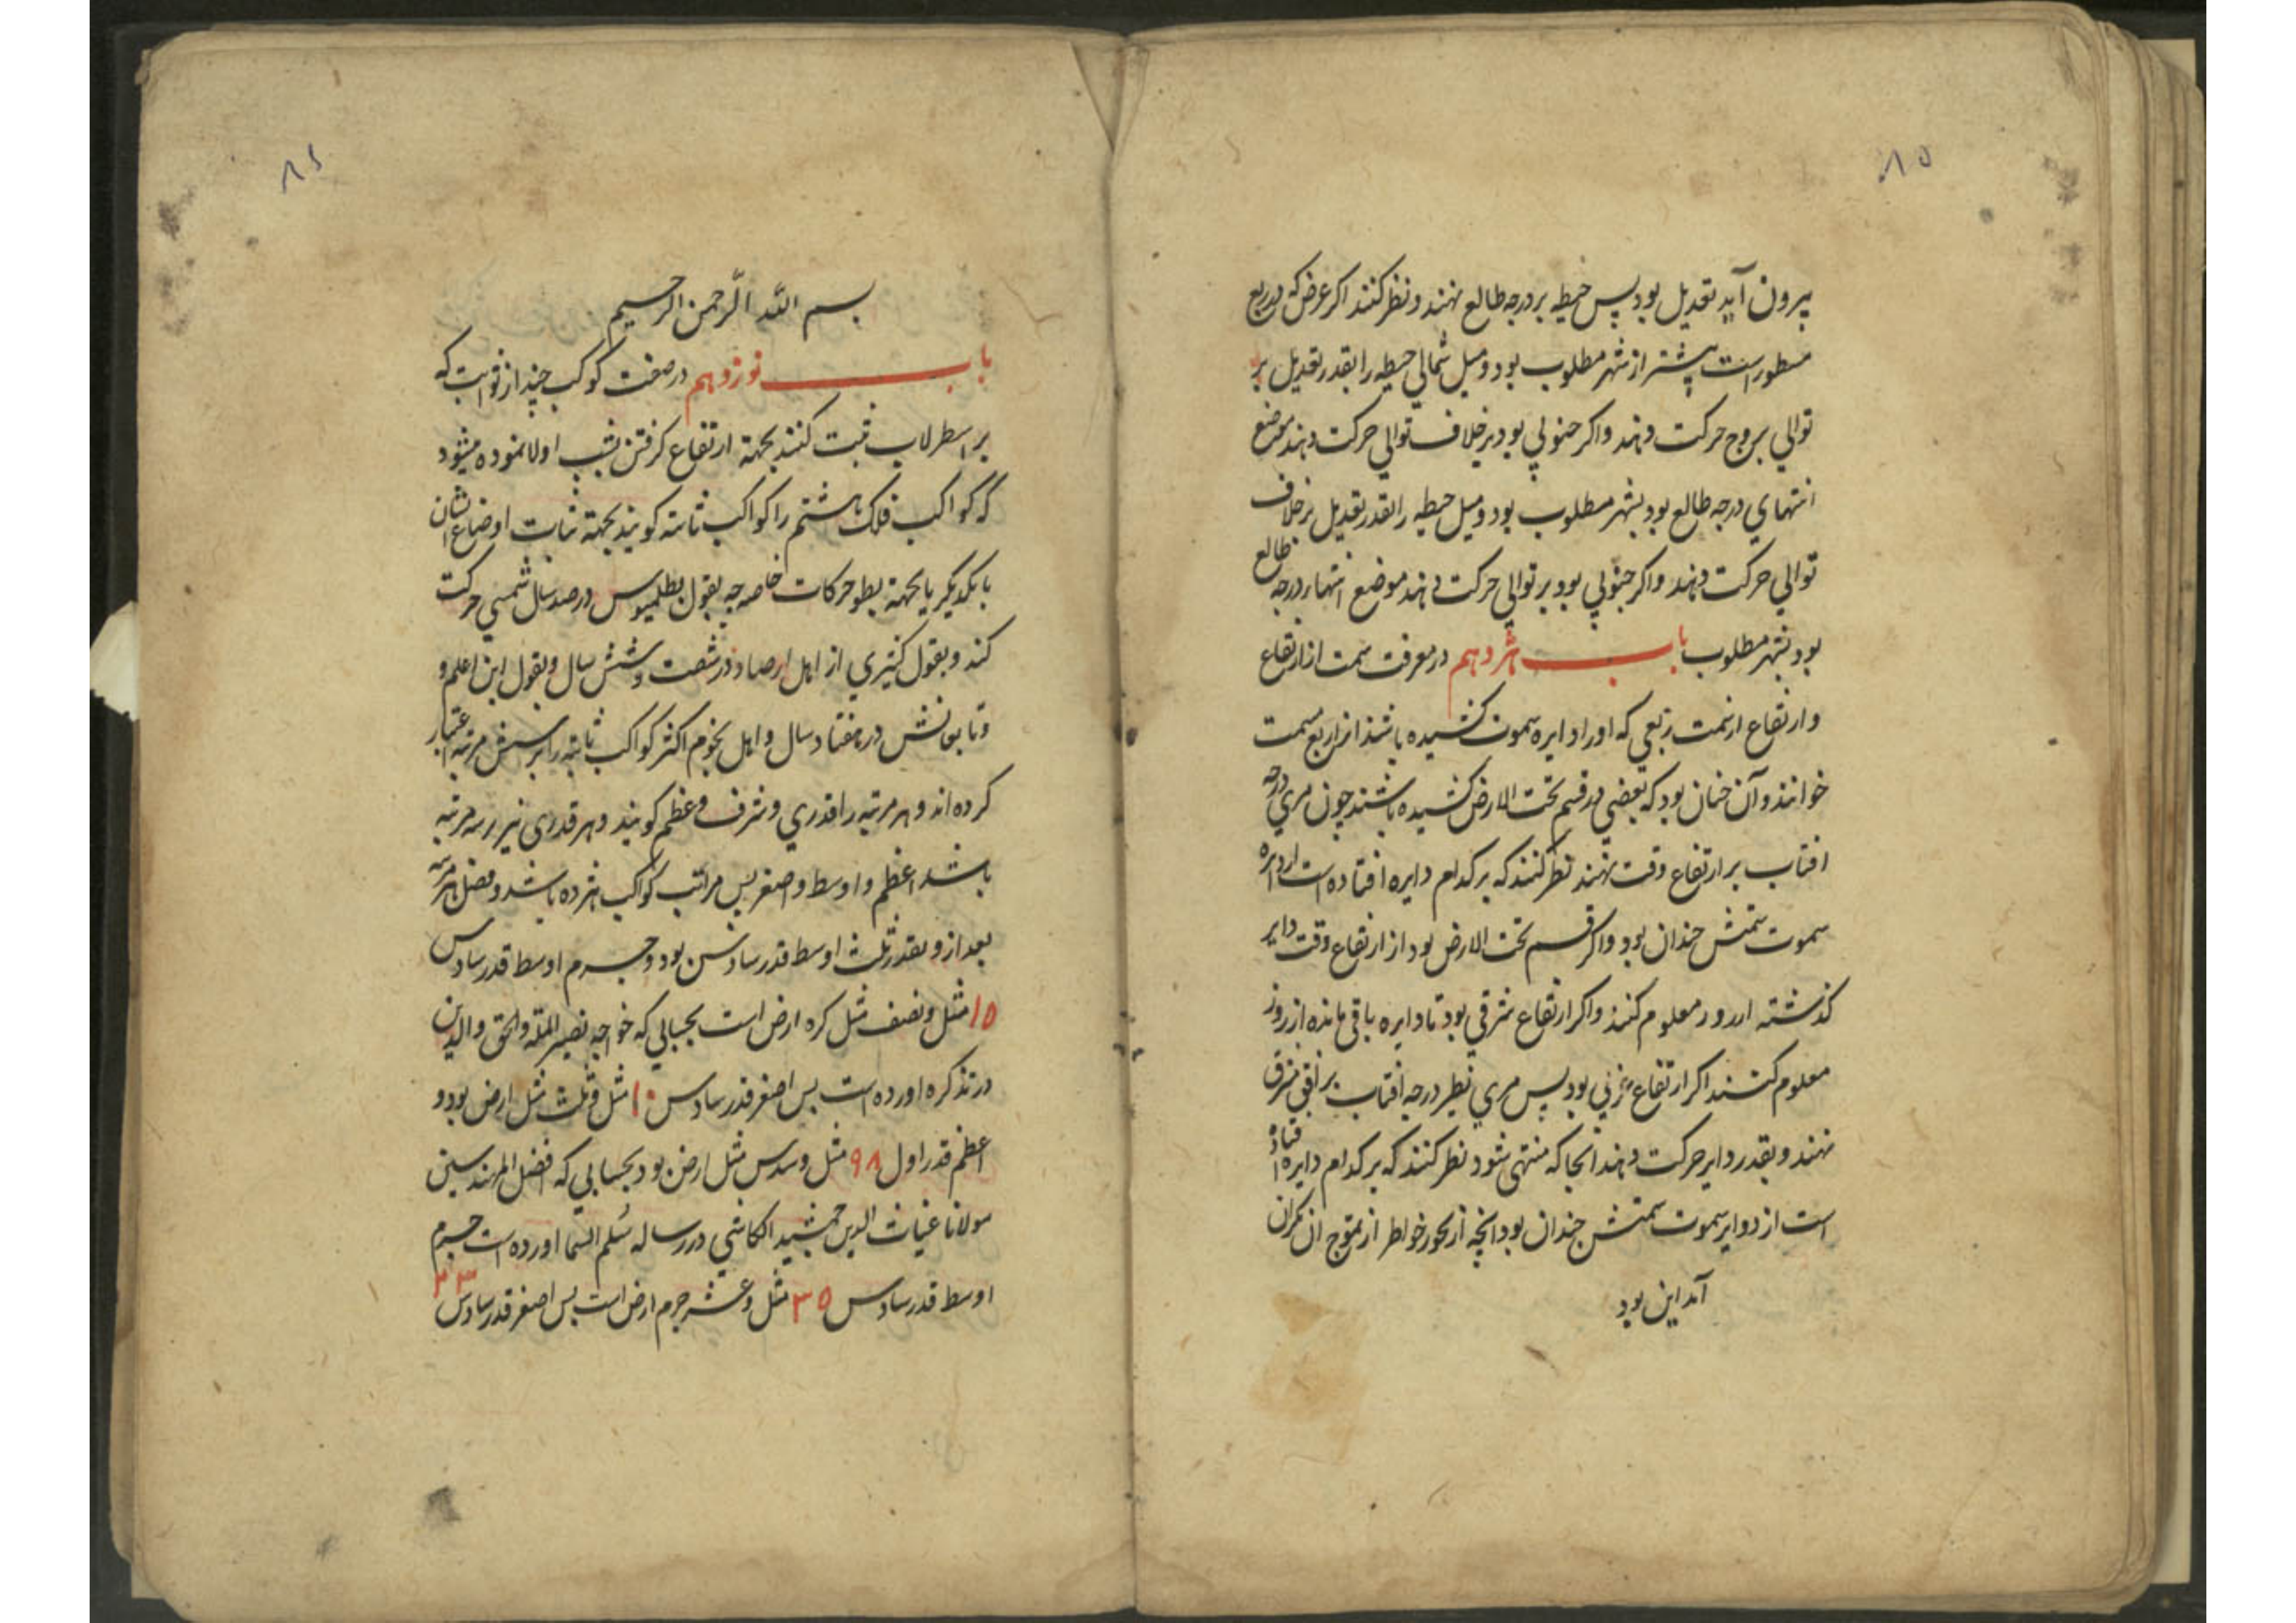 ۸۵
پرون آید تعدیل بود پس حیطه بر درجه طالع نهند و نظر کنند اکر عرض که در ربع
مسطور است پیشتر از شهر مطلوب بود و میل شمالی حیطه را بقدر تعدیل بر
توالی بروج حرکت دهند و اکر جنوبی بود بر خلاف توالی حرکت دهند موضع
انتهای درجه طالع بود بشهر مطلوب بود و میل حیطه را بقدر تعدیل بر خلاف
توالی حرکت دهند و اکر جنوبی بود بر توالی حرکت دهند موضع انتهاء درجه طالع
بود بشهر مطلوب باب هژدهم در معرفت سمت از ارتفاع
و ارتفاع از سمت ربعی که او را دایره سموت کشیده باشند انرا ربع سمت
خوانند و آن چنان بود که بعضی در قسم تحت الارض کشیده باشند چون مری درجه
افتاب بر ارتفاع وقت نهند نظر کنند که بر کدام دایره افتاده است از دایره
سموت سمتش چندان بود و اکر قسم تحت الارض بود از ارتفاع وقت دایر
کذشته از روز معلوم کنند و اکر ارتفاع شرقی بود تا دایره باقی مانده از روز
معلوم کنند اکر ارتفاع غربی بود پس مری نظیر درجه افتاب بر افق مشرق
نهند و بقدر دایر حرکت دهند انجا که منتهی شود نظر کنند که بر کدام دایره افتاده
است از دوایر سموت سمتش چندان بود انچه از بحور خواطر از تموج ان بکران
آمد این بود
۸۶
بسم الله الرحمن الرحیم
باب نوزدهم در صفت کوکب چند از ثوابت که
بر اسطرلاب ثبت کنند بجهة ارتفاع کرفتن بشب اولا نموده میشود
که کواکب فلک هشتم را کواکب ثابته کویند بجهة ثبات اوضاع ایشان
با یکدیکر یا بجهة بطو حرکات خاصه چه بقول بطلمیوس در صد سال شمسی حرکت
کند و بقول کثیری از اهل ارصاد در شصت و شش سال و بقول ابن اعلم و
و تابعانش در هفتاد سال و اهل نجوم اکثر کواکب ثابته را بر شش مرتبه اعتبار
کرده اند و هر مرتبه را قدری و شرف و عظم کویند و هر قدری نیز بر سه مرتبه
باشد اعظم و اوسط و اصغر پس مراتب کواکب هژده باشد و فضل هر مرتبه
بعد ازو بقدر ثلث اوسط قدر سادس بود و جرم اوسط قدر سادس
۱۵ مثل و نصف مثل کره ارض است بحسابی که خواجه نصیر المله والحق والدین
در تذکره اورده است پس اصغر قدر سادس ۱۰ مثل و ثلث مثل ارض بود و
اعظم قدر اول ۹۸ مثل و سدس مثل ارض بود بحسابی که افضل المهندسین
مولانا غیاث الدین جمشید الکاشی در رساله سلم السما اورده است جرم
اوسط قدر سادس ۳۵ مثل و عشر جرم ارض است پس اصغر قدر سادس ۲۳